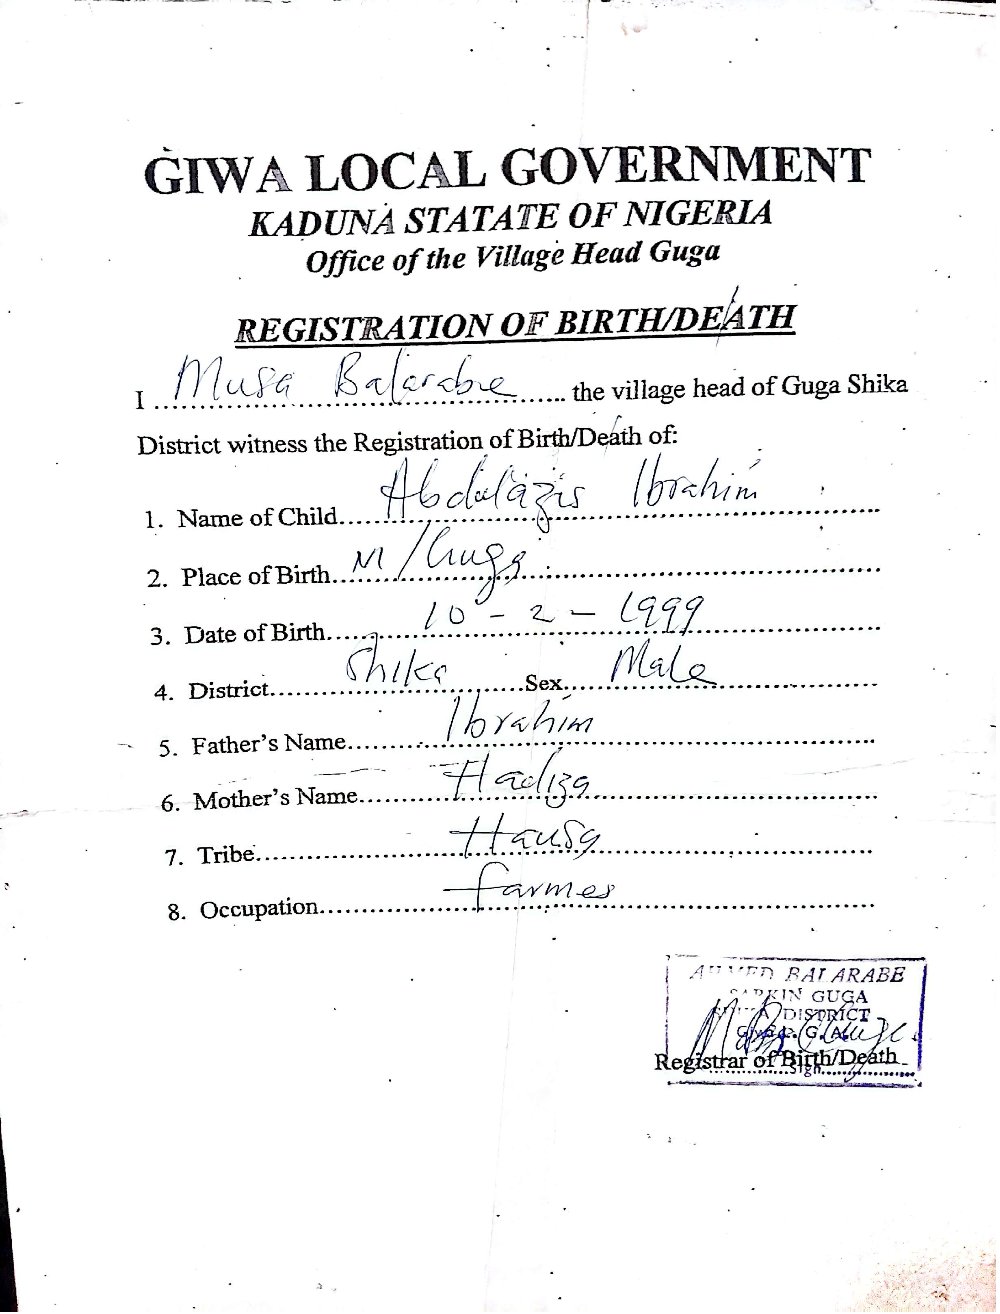 GIWA LOCAL GOVERNMENT
KADUNA STATATE OF NIGERIA
Office of the Village Head Guga
REGISTRATION OF BIRTH/DEATH
I Musa Balarabe the village head of Guga Shika
District witness the Registration of Birth/Death of:
1. Name of Child Abdulazis Ibrahim
2. Place of Birth M/Guga
3. Date of Birth 10 - 2 - 1999
4. District Shika Sex Male
5. Father's Name Ibrahim
6. Mother's Name Hadiza
7. Tribe Hausa
8. Occupation farmer
AHMED BALARABE
SARKIN GUGA
DISTRICT
Registrar of Birth/Death
Sign